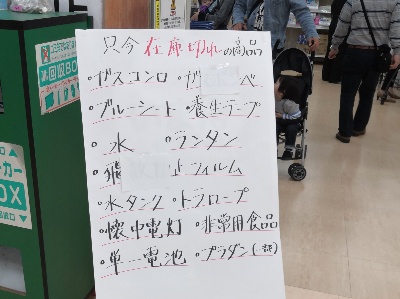 只今在庫切れの商品
・ガスコンロ ・ガ ベ
・ブルーシート ・養生テープ
・水 ・ランタン
・飛 止フィルム
・水タンク ・トラロープ
・懐中電灯 ・非常用食品
・単一電池 ・プラダン(一部)
回収BOX
カー
BOX